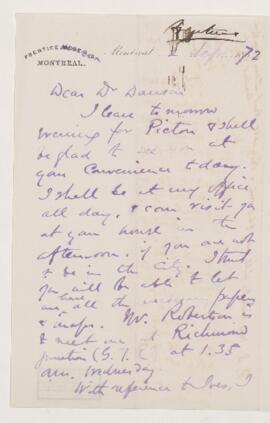 MONTREAL.
Montreal 1872
Dear Dr Dawson
I leave tomorrow
evening for Pictou & shall
be glad to see you at
your convenience today.
I shall be at my office
all day, & can visit you
at your house in the
afternoon, if you are not
to be in the city. I trust
you will be able to let
me have all the necessary papers
& maps. Mr. Robertson is
to meet me at Richmond
Junction (G.T.R.) at 1.35
a.m. Wednesday
With reference to Ives, I